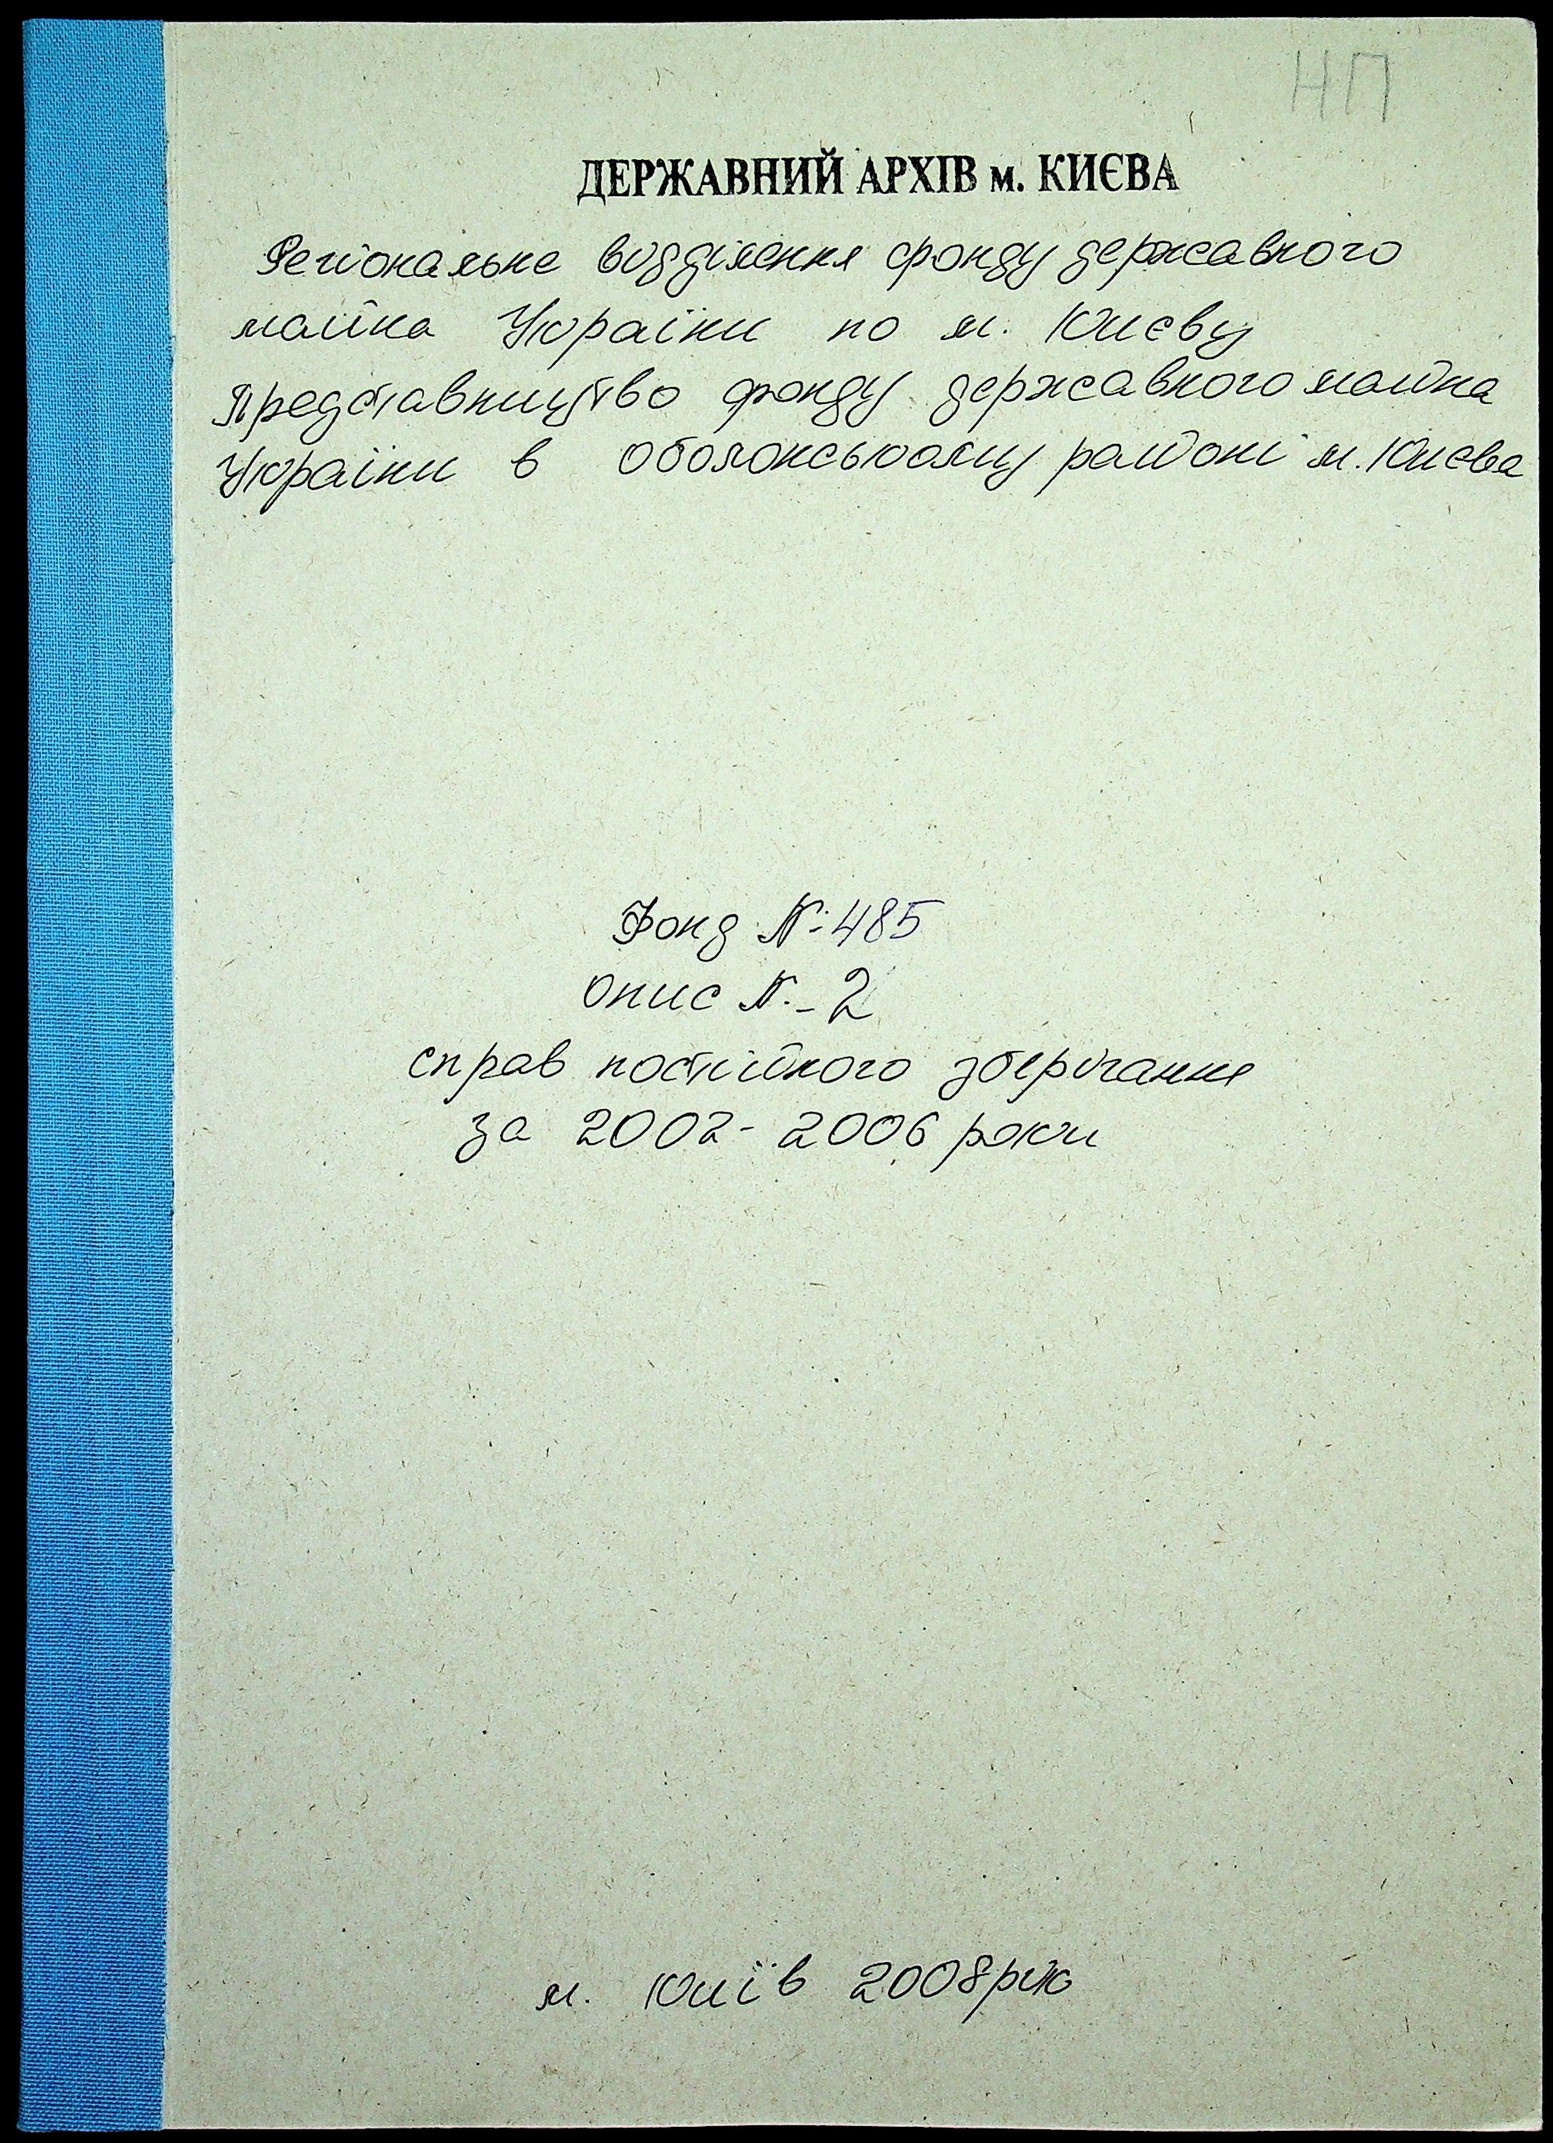 НП
ДЕРЖАВНИЙ АРХІВ м. КИЄВА
Регіональне відділення фонду державного
майна України по м. Києву
Представництво фонду державного майна
України в Оболонському районі м. Києва
Фонд №485
Опис № 2
справ постійного зберігання
за 2002-2006 роки
м. Київ 2008 рік